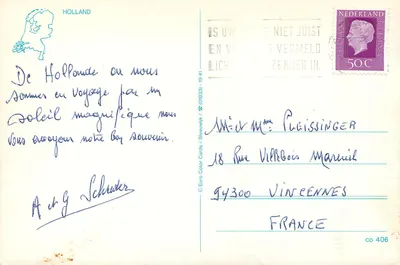 HOLLAND
De Hollande ou nous
sommes en voyage par un
soleil magnifique nous
vous envoyons notre bon souvenir.
A et G Schreder
IS UW NIET JUIST
EN VERMELD
IN.
NEDERLAND
50 C
Mr et Mme PLEISSINGER
18 Rue Villebois Mareuil
94300 VINCENNES
FRANCE
co. 406